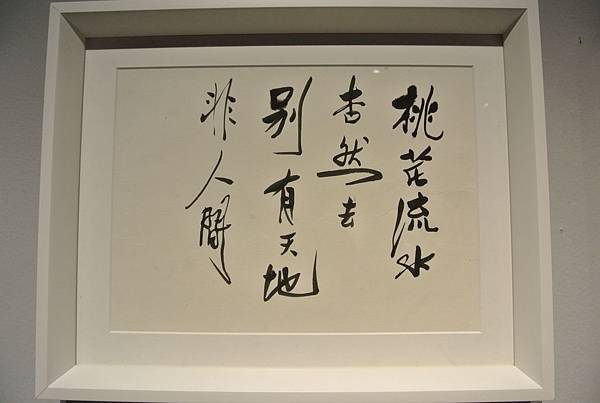 桃花流水
杳然去
别有天地
非人間